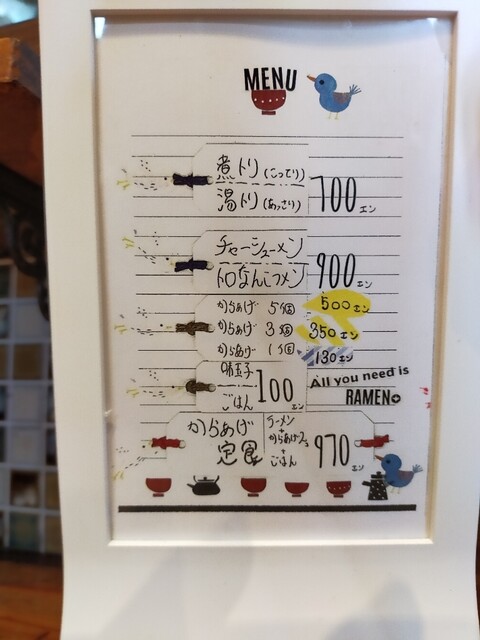 MENU
煮トリ(こってり)
湯トリ(あっさり) 700エン
チャーシューメン
トロなんこつメン 900エン
からあげ 5個 500エン
からあげ 3個 350エン
からあげ 1個 130エン
味玉子
ごはん 100エン
All you need is
RAMEN
からあげ
定食
ラーメン
+
からあげ2コ
+
ごはん
970エン